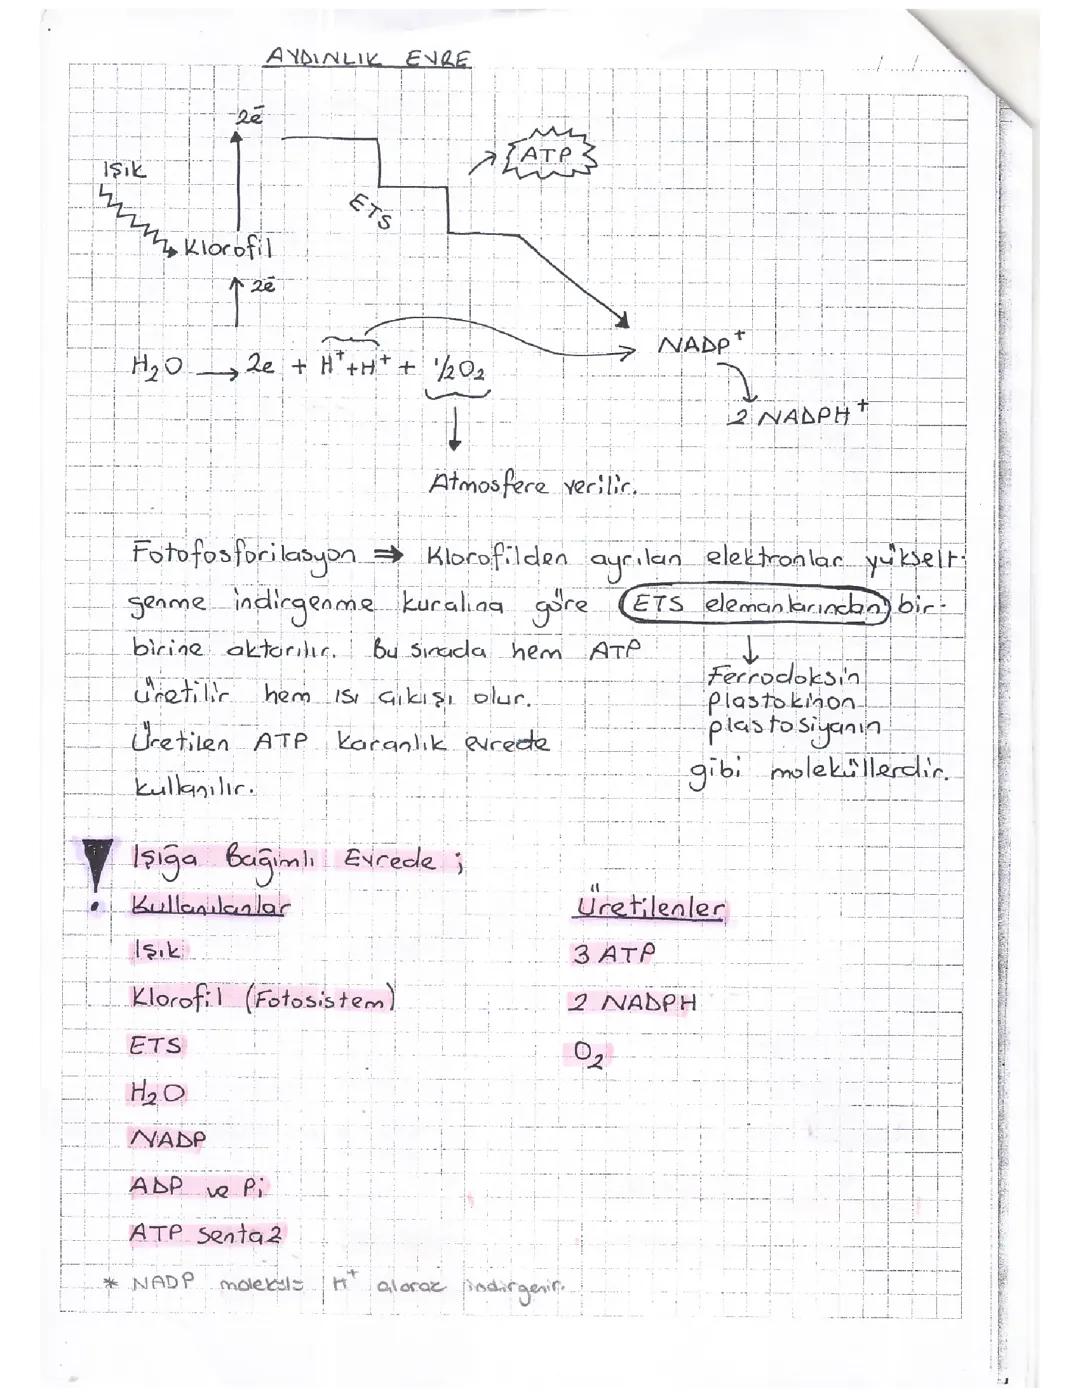 AYDINLIK EVRE
2ē
ATP
Işık
ETS
Klorofil
2ē
NADP⁺
H₂O → 2e + H⁺+H⁺ + ½O₂
2 NADPH⁺
Atmosfere verilir.
Fotofosforilasyon ⇒ Klorofilden ayrılan elektronlar yükselt-
genme indirgenme kuralına göre (ETS elemanlarından) bir-
birine aktarılır. Bu sırada hem ATP
üretilir hem ısı çıkışı olur.
Üretilen ATP karanlık evrede
kullanılır.
Ferrodoksin
plastokinon
plastosiyanin
gibi moleküllerdir.
! Işığa Bağımlı Evrede ;
Kullanılanlar
Işık
Klorofil (Fotosistem)
ETS
H₂O
NADP
ADP ve Pi
ATP sentaz
Üretilenler
3 ATP
2 NADPH
O₂
* NADP molekülü H⁺ alarak indirgenir.